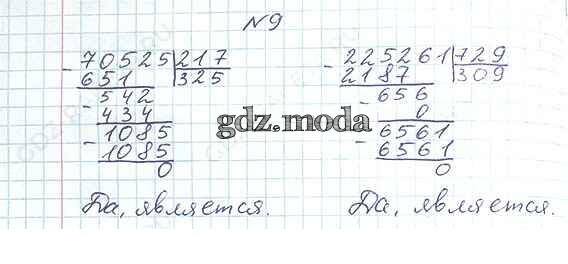 №9
70525|217
651 |325
542
434
1085
1085
0
Да, является.
225261|729
2187 |309
656
0
6561
6561
0
Да, является.
gdz.moda